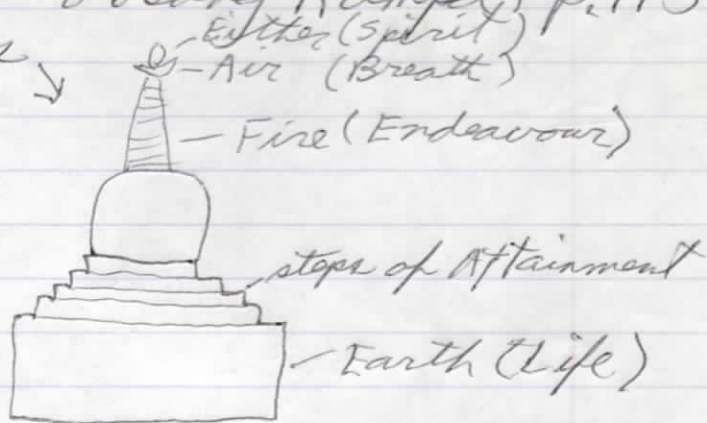 Rampa, p. 113
Either (Spirit)
Air (Breath)
Fire (Endeavour)
steps of Attainment
Earth (Life)